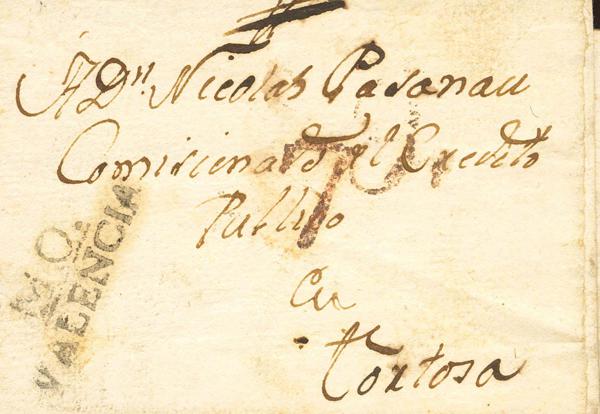 A Dn. Nicolas Pasanau
Comisionado del Credito
Publico
En
Tortosa
M.O.
VALENCIA